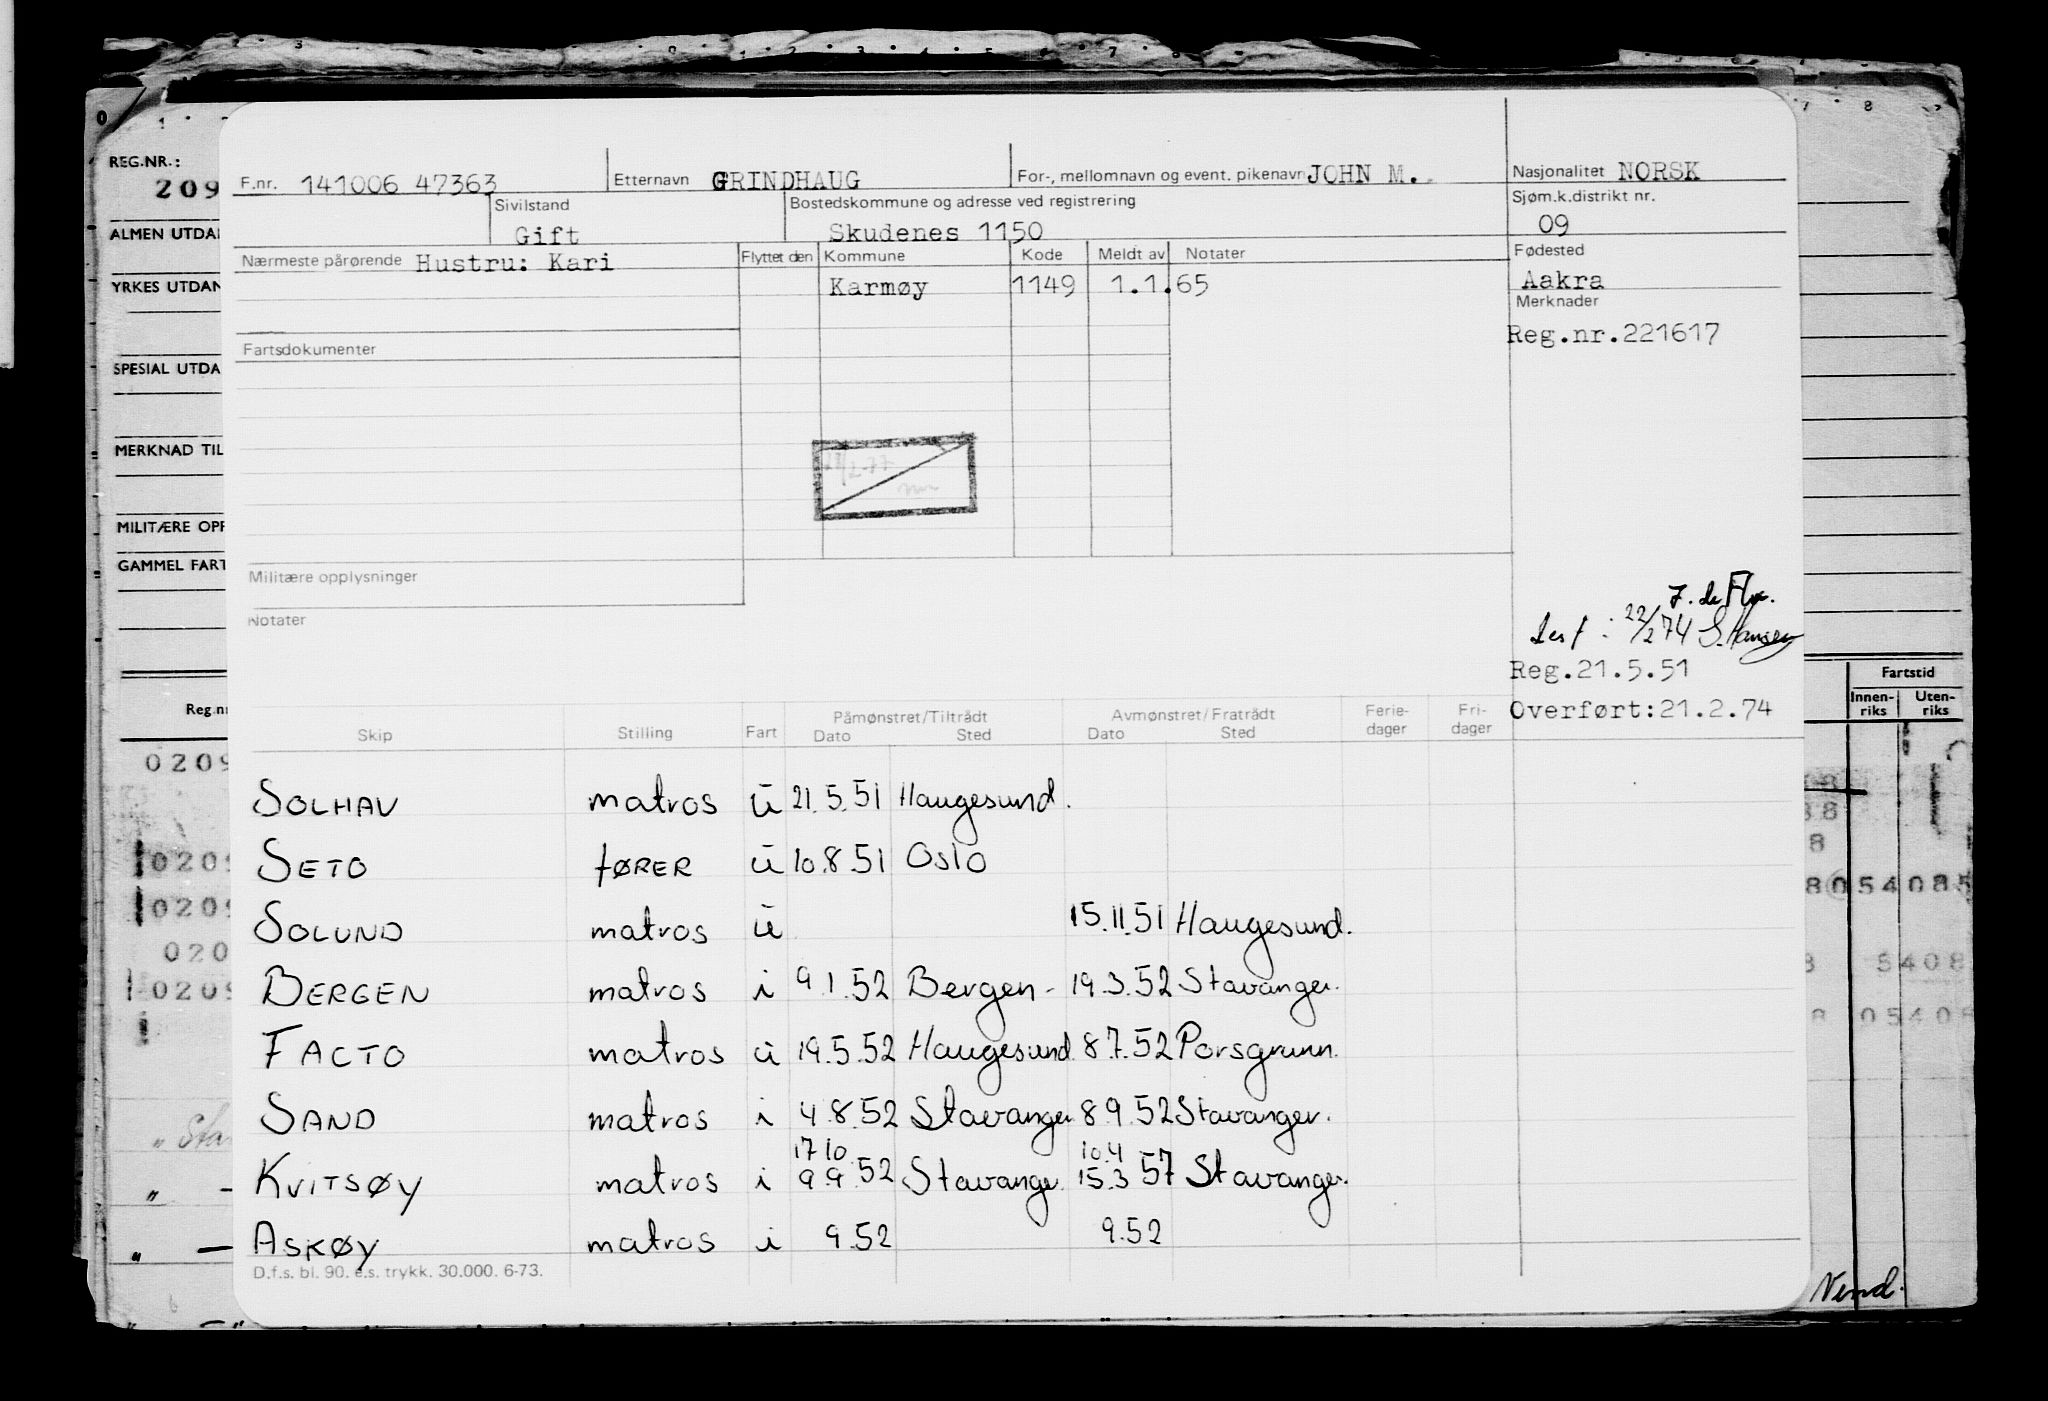 REG.NR.:
209
ALMEN UTDA
YRKES UTDAN
SPESIAL UTDA
MERKNAD TIL
MILITÆRE OPP
GAMMEL FART
Reg.nr
F.nr. 141006 47363 Etternavn GRINDHAUG For-, mellomnavn og event. pikenavn JOHN M. Nasjonalitet NORSK
Sivilstand Gift Bostedskommune og adresse ved registrering Skudenes 1150 Sjøm.k.distrikt nr. 09
Nærmeste pårørende Hustru: Kari Flyttet den Kommune Kode Meldt av Notater Fødested
Karmøy 1149 1.1.65 Aakra
Merknader
Reg.nr.221617
Fartsdokumenter
Militære opplysninger
Notater
22/2 74 S. Hansen
Reg.21.5.51
Overført:21.2.74
Fartstid
Innen-riks Uten-riks
Skip Stilling Fart Påmønstret/Tiltrådt Dato Sted Avmønstret/Fratrådt Dato Sted Ferie-dager Fri-dager
SOLHAV matros u 21.5.51 Haugesund.
SETO fører u 10.8.51 Oslo
SOLUND matros u 15.11.51 Haugesund.
BERGEN matros i 9.1.52 Bergen - 19.3.52 Stavanger.
FACTO matros u 19.5.52 Haugesund 8.7.52 Porsgrunn.
SAND matros i 4.8.52 Stavanger 8.9.52 Stavanger.
17 10 10.4
KVITSØY matros i 9.9.52 Stavanger 15.3 57 Stavanger.
ASKØY matros i 9.52 9.52
D.f.s. bl. 90. e.s. trykk. 30.000. 6-73.
Vend.